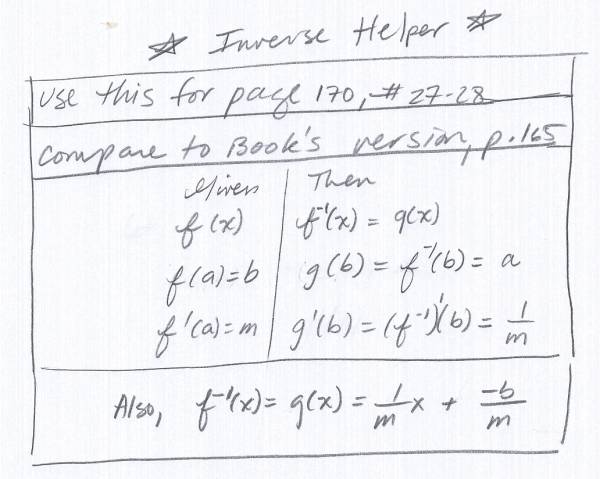 ☆ Inverse Helper ☆
Use this for page 170, # 27-28
Compare to Book's version, p. 165
Given | Then
f(x) | f⁻¹(x) = g(x)
f(a)=b | g(b) = f⁻¹(b) = a
f'(a)=m | g'(b) = (f⁻¹)'(b) = 1/m
Also, f⁻¹(x) = g(x) = 1/m x + -b/m